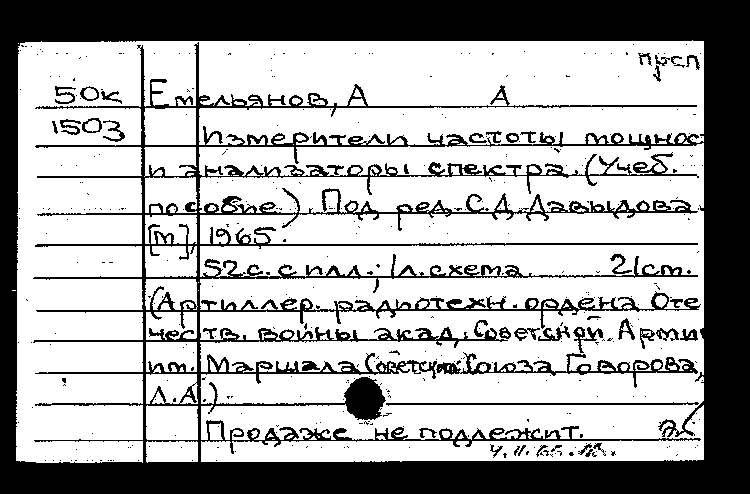 прсп
50к Емельянов, А А
1503 Измерители частоты, мощнос
и анализаторы спектра. (Учеб.
пособие). Под ред. С.Д. Давыдова.
[М], 1965.
52с. с илл.; 1л. схема 21см.
(Артиллер. радиотехн. ордена Оте
честв. войны акад. Советской Арми
им. Маршала Советского Союза Говорова,
Л.А.)
Продаже не подлежит.